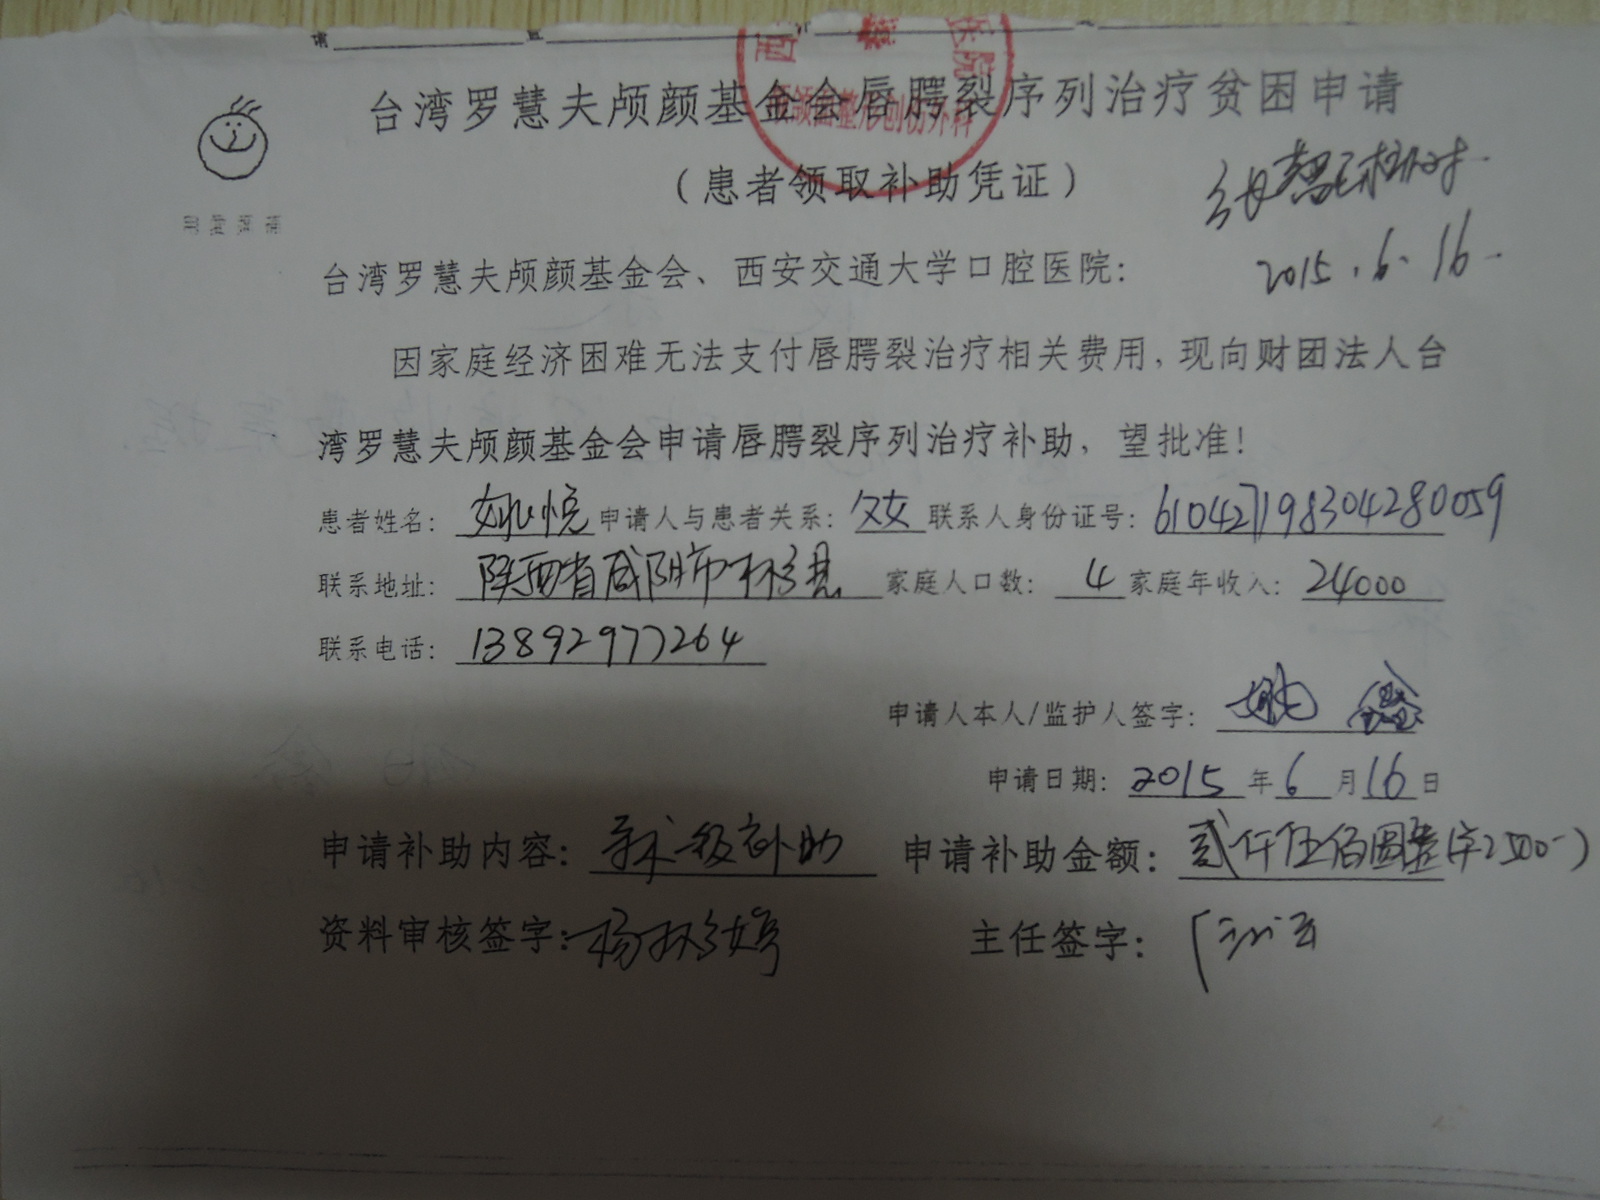 台湾罗慧夫颅颜基金会唇腭裂序列治疗贫困申请
(患者领取补助凭证)
用爱弥补
2015.6.16
台湾罗慧夫颅颜基金会、西安交通大学口腔医院:
因家庭经济困难无法支付唇腭裂治疗相关费用,现向财团法人台
湾罗慧夫颅颜基金会申请唇腭裂序列治疗补助,望批准!
患者姓名: 姚悦 申请人与患者关系: 父女 联系人身份证号: 610427198304280059
联系地址: 陕西省咸阳市彬县 家庭人口数: 4 家庭年收入: 24000
联系电话: 13892977264
申请人本人/监护人签字: 姚鑫
申请日期: 2015 年 6 月 16 日
申请补助内容: 手术一级补助 申请补助金额: 贰仟伍佰圆整(¥2500-)
资料审核签字: 主任签字: